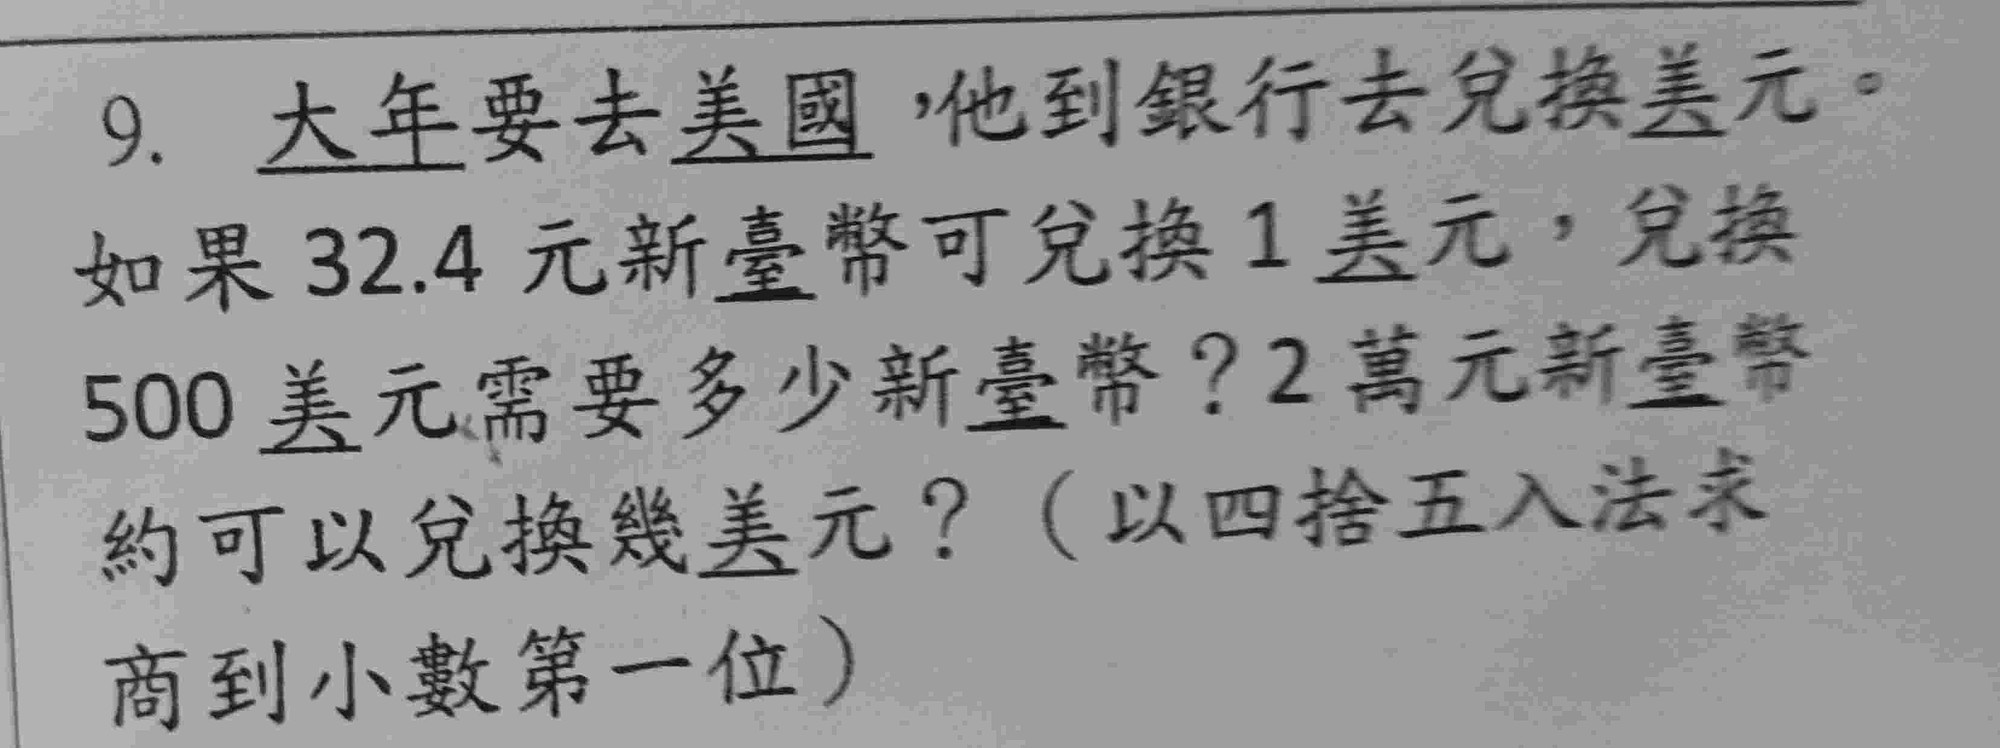 9. 大年要去美國,他到銀行去兌換美元。
如果 32.4 元新臺幣可兌換 1 美元,兌換
500 美元需要多少新臺幣?2 萬元新臺幣
約可以兌換幾美元?(以四捨五入法求
商到小數第一位)